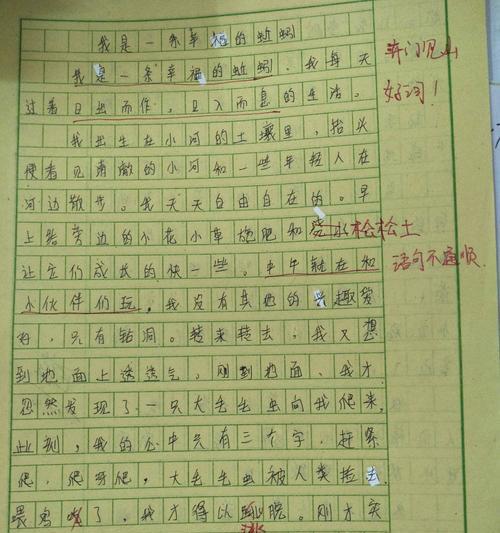 我是一条幸福的蚯蚓
我是一条幸福的蚯蚓。我每天
开门见山
过着日出而作,日入而息的生活。
好词!
我出生在小河的土壤里,抬头
便看见清澈的小河和一些年轻人在
河边散步。我天天自由自在的。早
上给旁边的小花小草施肥和浇水松松土
让它们成长的快一些。中午就在和
语句不通顺
小伙伴们玩。我没有其他的兴趣爱
好,只有钻洞。转来转去,我又想
到地面上透透气,刚到地面、我才
忽然发现了一只大毛毛虫向我爬来,
此刻,我的心中只有三个字,赶紧
爬,爬呀爬,大毛毛虫被人类捡去
喂鸡了,我才得以逃脱。刚才实
逃